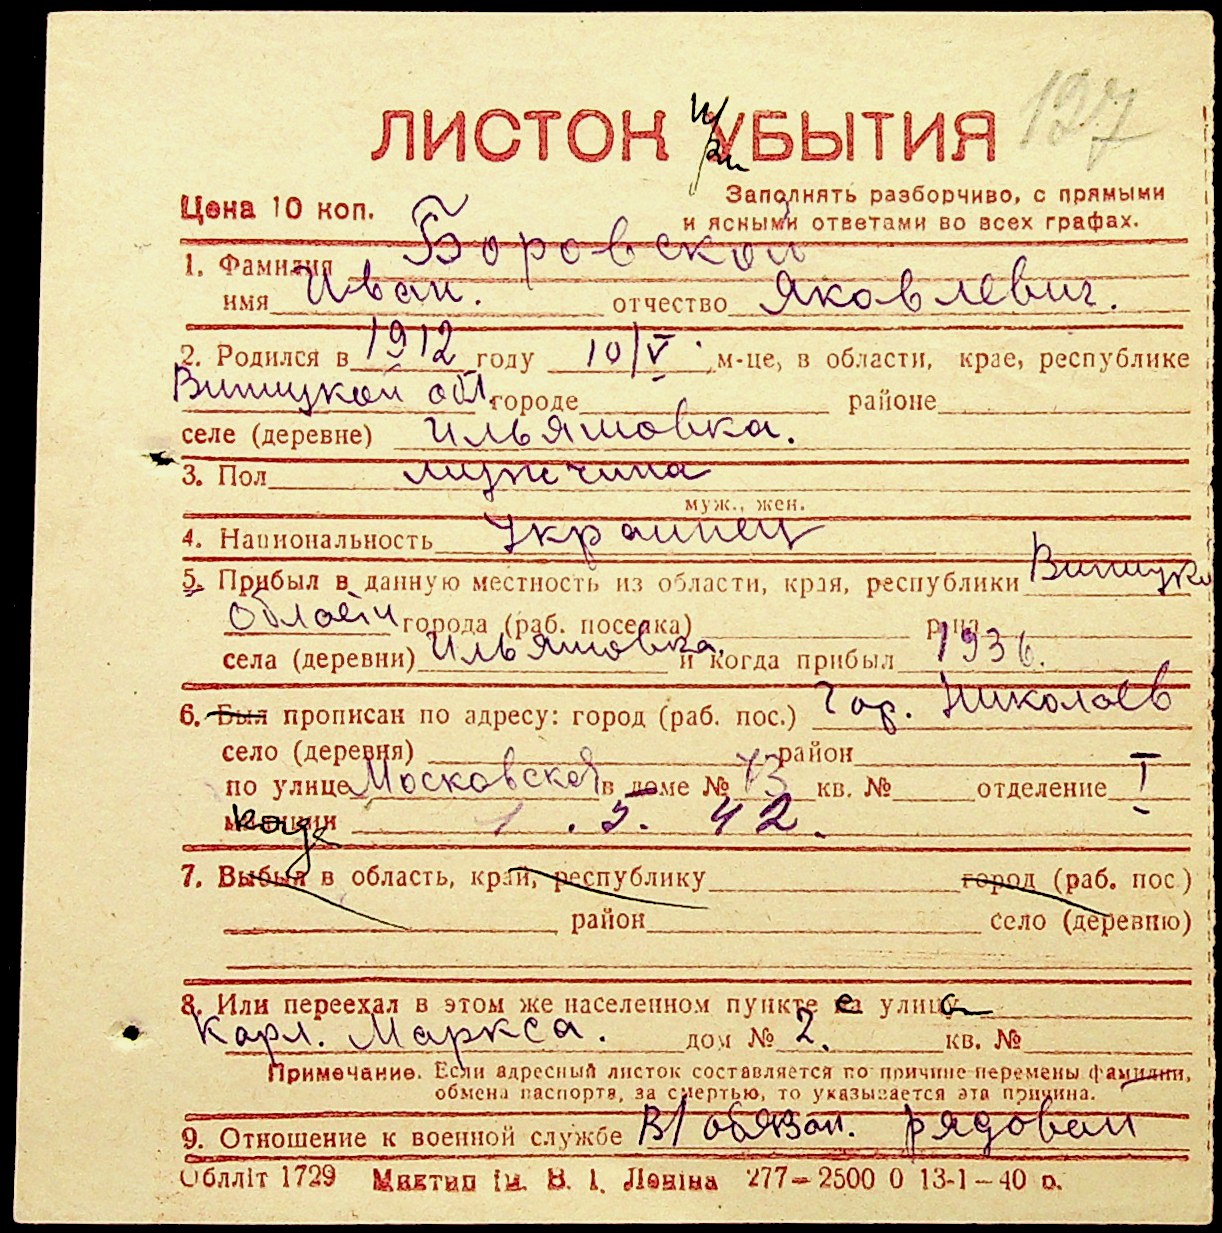 127
ЛИСТОК УБЫТИЯ
при
Цена 10 коп.
Заполнять разборчиво, с прямыми
и ясными ответами во всех графах.
1. Фамилия Боровской
имя Иван. отчество Яковлевич.
2. Родился в 1912 году 10/V м-це, в области, крае, республике
Виницкой обл. городе районе
селе (деревне) Ильяшовка.
3. Пол мужчина
муж., жен.
4. Национальность Украинец
5. Прибыл в данную местность из области, края, республики Виницко
области города (раб. поселка) р-на
села (деревни) Ильяшовка. и когда прибыл 1936.
6. Был прописан по адресу: город (раб. пос.) Гор. Николаев
село (деревня) район
по улице Московской в доме № 73 кв. № отделение I
милиции 1.5.42.
7. Выбыл в область, край, республику город (раб. пос.)
район село (деревню)
8. Или переехал в этом же населенном пункте на улицу
Карл. Маркса. дом № 2. кв. №
Примечание. Если адресный листок составляется по причине перемены фамилии,
обмена паспорта, за смертью, то указывается эта причина.
9. Отношение к военной службе В/обязан. рядовой
Облліт 1729 Миктип ім. В. І. Леніна 277—2500 0 13-1—40 р.